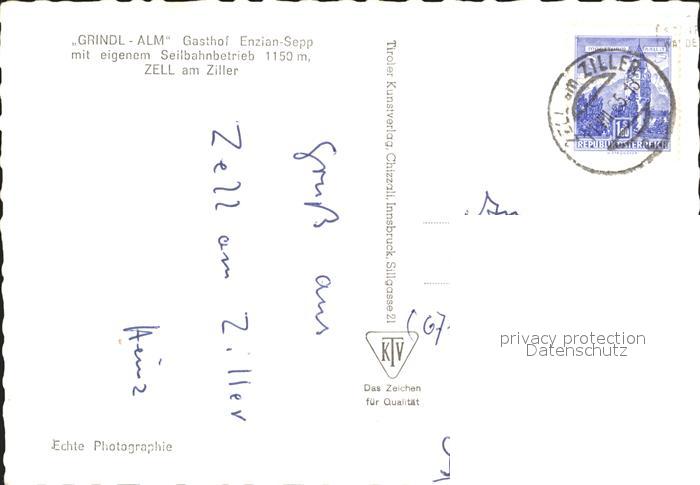 „GRINDL - ALM“ Gasthof Enzian-Sepp
mit eigenem Seilbahnbetrieb 1150 m,
ZELL am Ziller
Gruß aus
Zell am Ziller
Heinz
Echte Photographie
Tiroler Kunstverlag, Chizzali, Innsbruck, Sillgasse 21
KTV
Das Zeichen
für Qualität
ZELL am ZILLER
REPUBLIK ÖSTERREICH
An
(67.
privacy protection
Datenschutz